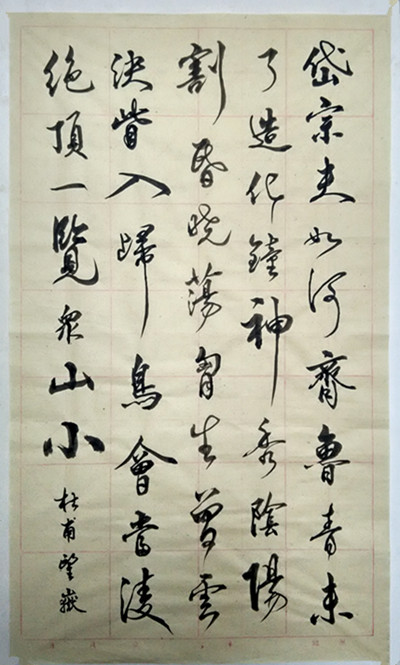 岱宗夫如何齊魯青未
了造化鐘神秀陰陽
割昏曉蕩胸生曾雲
決眥入歸鳥會當凌
絕頂一覽眾山小
杜甫望嶽